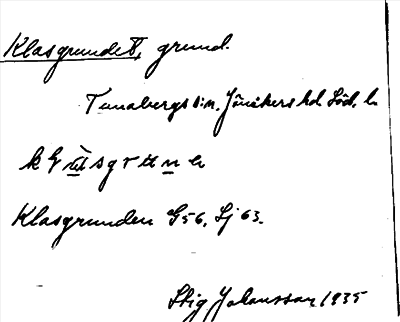 Klasgrundet, grund.
Tunabergs sn. Jönåkers hd Söd. l.
Klasgrunden G56, Sj 63.
Stig Johansson 1935